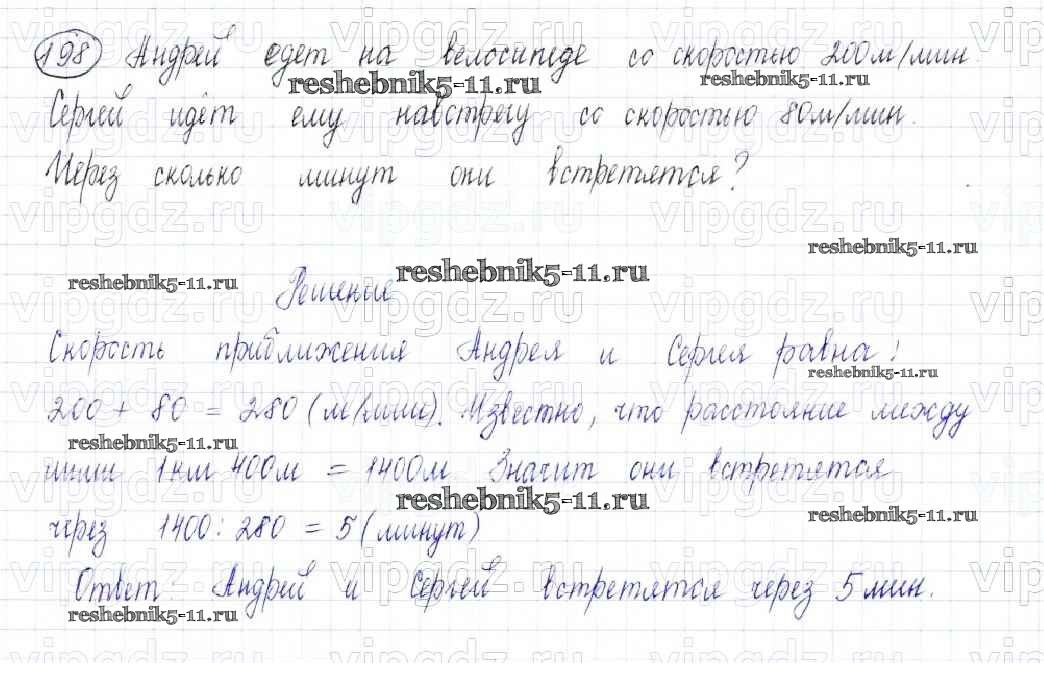 198 Андрей едет на велосипеде со скоростью 200м/мин.
Сергей идёт ему навстречу со скоростью 80м/мин.
Через сколько минут они встретятся?
Решение
Скорость приближения Андрея и Сергея равна:
200 + 80 = 280 (м/мин). Известно, что расстояние между
ними 1км 400м = 1400м. Значит они встретятся
через 1400 : 280 = 5 (минут)
Ответ: Андрей и Сергей встретятся через 5 мин.
reshebnik5-11.ru
reshebnik5-11.ru
reshebnik5-11.ru
reshebnik5-11.ru
reshebnik5-11.ru
reshebnik5-11.ru
reshebnik5-11.ru
reshebnik5-11.ru
reshebnik5-11.ru
reshebnik5-11.ru
vipgdz.ru